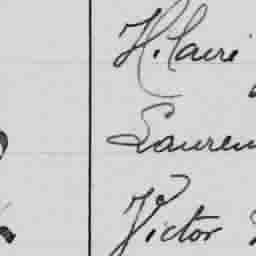 Hilaire
Lauren
Victor